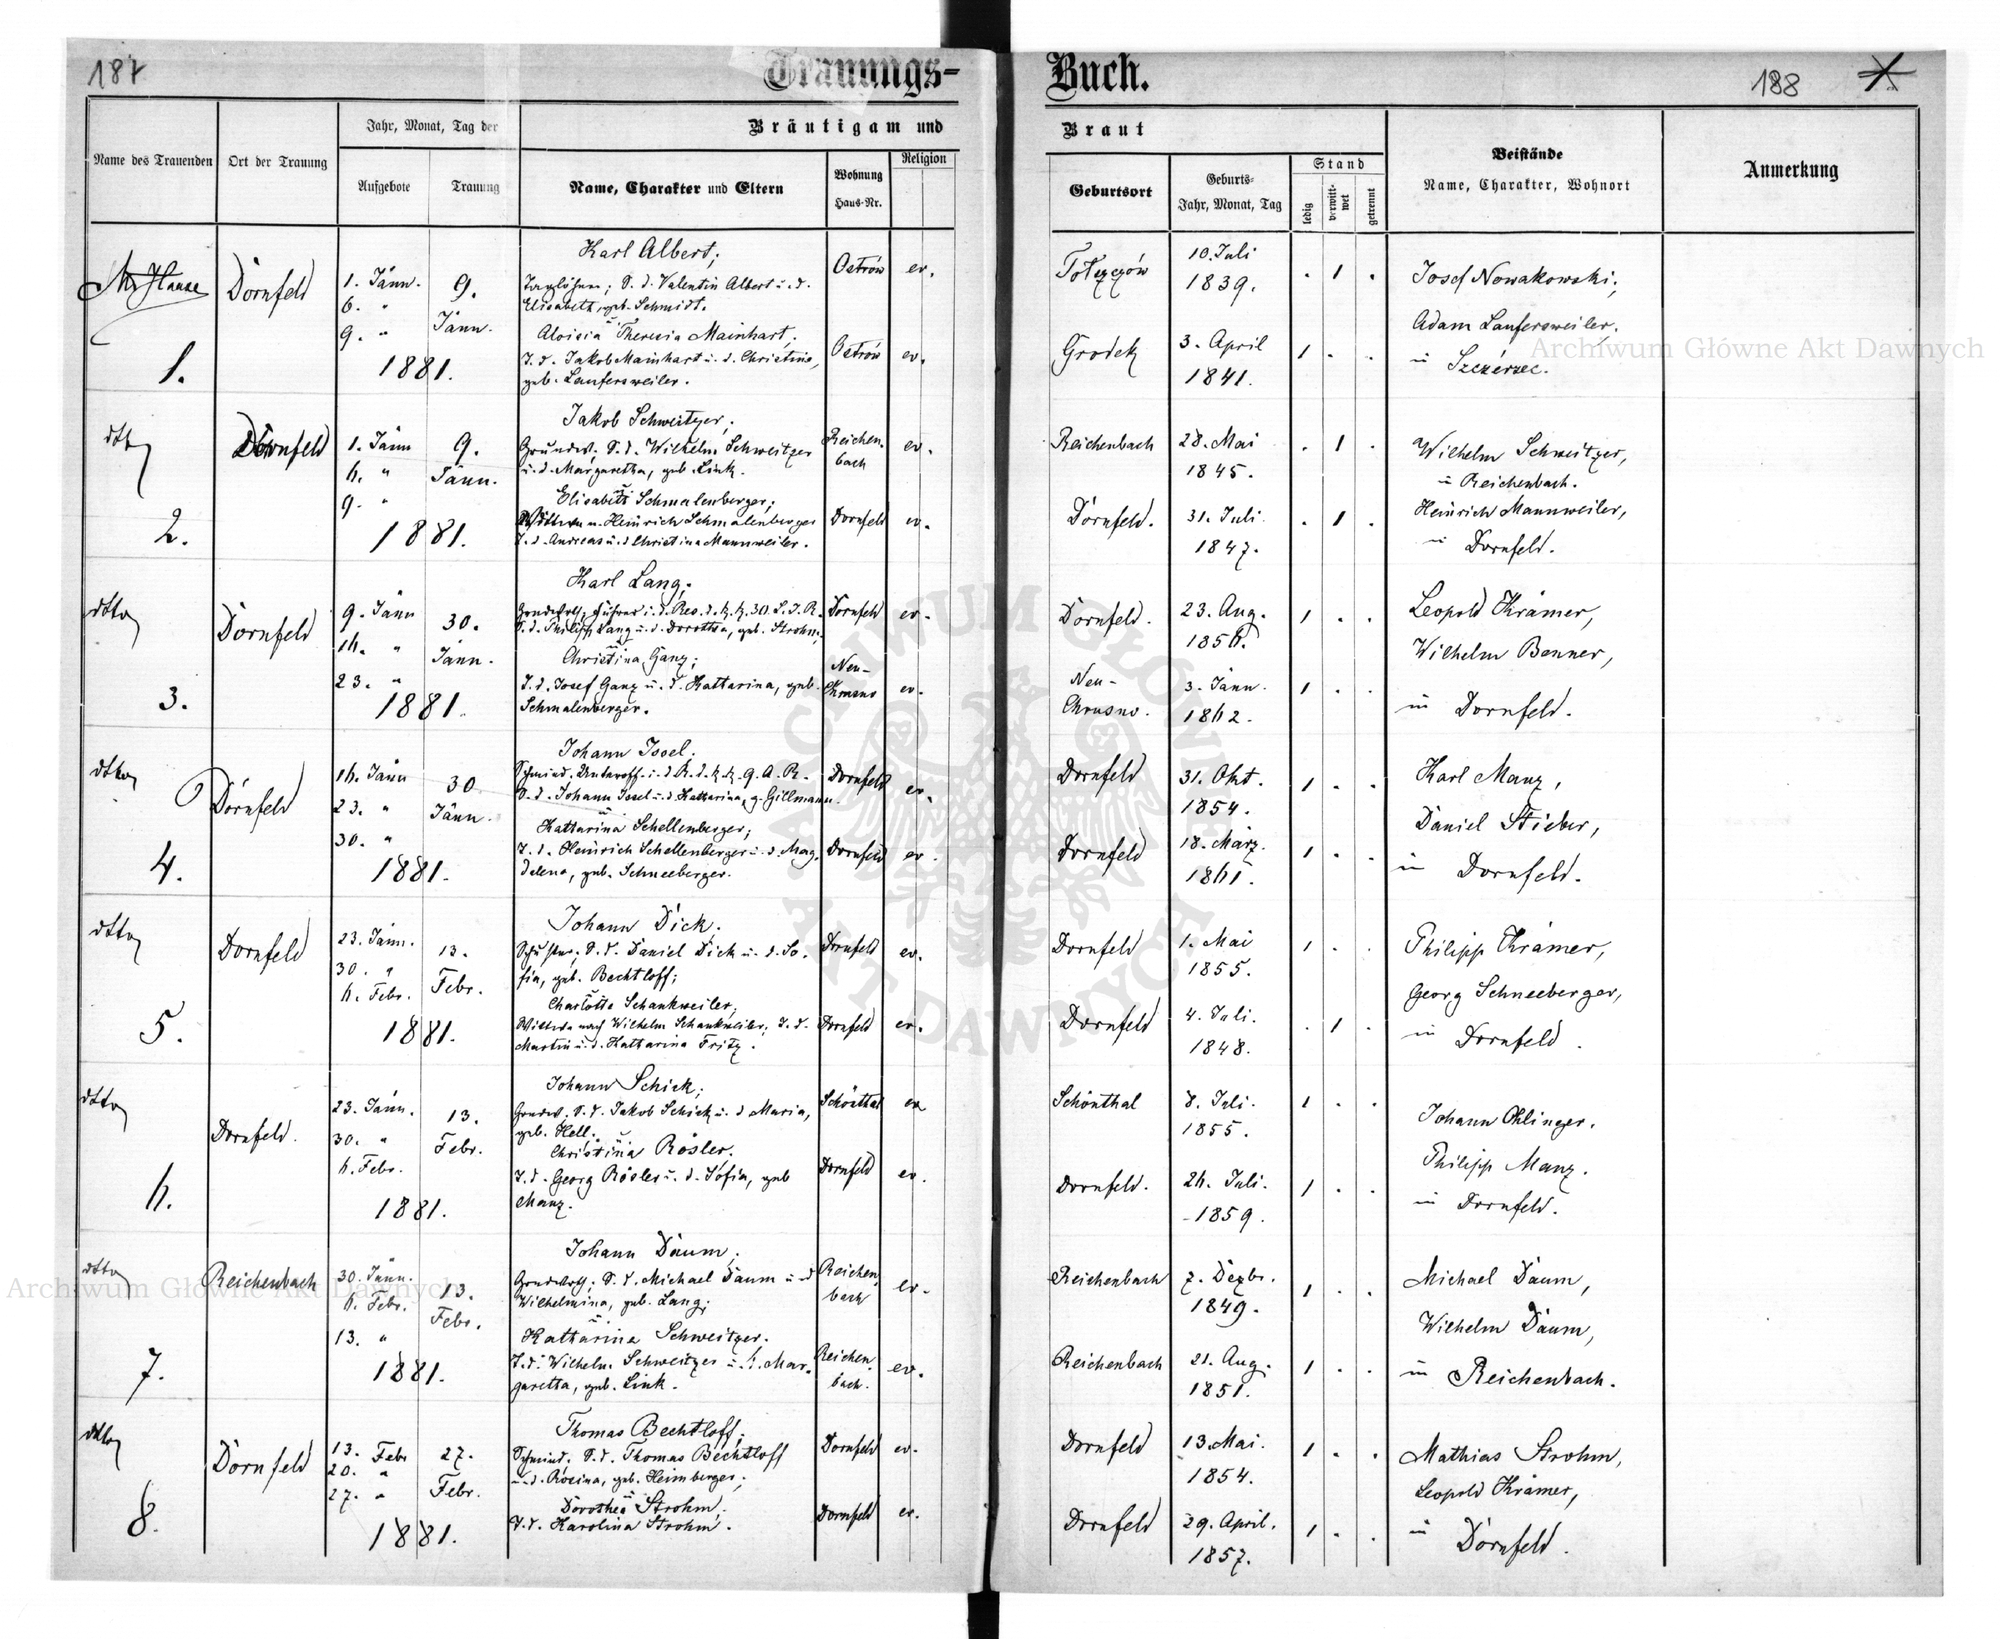 187
Trauungs=
Buch.
188
1
Name des Trauenden
Ort der Trauung
Jahr, Monat, Tag der
Aufgebote
Trauung
Bräutigam und
Name, Charakter und Eltern
Wohnung
Haus-Nr.
Religion
Braut
Geburtsort
Geburts-
Jahr, Monat, Tag
Stand
ledig
verwitt-
wet
getrennt
Beistände
Name, Charakter, Wohnort
Anmerkung
Dornfeld
1. Jänn.
6. "
9. "
9.
Jänn.
1881.
Karl Albert;
Taglöhner; S. d. Valentin Albert u. d.
Elisabeth, geb. Schmidt.
u
Aloisia Theresia Mainhart;
T. d. Jakob Mainhart u. d. Christine,
geb. Laufersweiler.
Ostrów
ev.
Ostrów
ev.
10. Juli
1839.
. 1 .
Grodek
3. April
1841.
1 . .
Josef Nowakowski;
Adam Laufersweiler.
in Szczérzec.
1.
dtto
Dornfeld
1. Jänn
6. "
9. "
9.
Jänn.
1881.
Jakob Schweitzer;
Grundw. S. d. Wilhelm Schweitzer
u. d. Margaretha, geb. Link.
u
Elisabeth Schmalenberger;
Wittwe n. Heinrich Schmalenberger
T. d. Andreas u. d. Christina Mannweiler.
Reichen-
bach
ev.
Dornfeld
ev.
Reichenbach
28. Mai
1845.
. 1 .
Dornfeld.
31. Juli
1847.
. 1 .
Wilhelm Schweitzer,
in Reichenbach.
Heinrich Mannweiler,
in Dornfeld.
2.
dtto
Dornfeld
9. Jänn
16. "
23. "
30.
Jänn.
1881.
Karl Lang;
Grundwrth; Führer i. d. Res. d. k. k. 30. L. I. R.
S. d. Philipp Lang u. d. Dorothea, geb. Strohm;
u
Christina Ganz;
T. d. Josef Ganz u. d. Katharina, geb.
Schmalenberger.
Dornfeld
ev.
Neu-
Chrusno
ev.
Dornfeld.
23. Aug.
1856.
1 . .
Neu-
Chrusno.
3. Jänn.
1862.
1 . .
Leopold Krämer,
Wilhelm Benner,
in Dornfeld.
3.
dtto
Dornfeld
16. Jänn
23. "
30. "
30
Jänn.
1881.
Johann Issel.
Schmied. Unteroff. i. d. R. d. k. k. 9. A. R.
S. d. Johann Issel u. d. Katharina, g. Gillmann.
u
Katharina Schellenberger;
T. d. Heinrich Schellenberger u. d. Mag-
dalena, geb. Schneeberger.
Dornfeld
ev.
Dornfeld
ev.
Dornfeld
31. Okt.
1854.
1 . .
Dornfeld
18. März.
1861.
1 . .
Karl Manz,
Daniel Stieber,
in Dornfeld.
4.
dtto
Dornfeld
23. Jänn.
30. "
6. Febr.
13.
Febr.
1881.
Johann Dick;
Schuster; S. d. Daniel Dick u. d. So-
fia, geb. Bechtloff;
u
Charlotte Schankweiler,
Wittwe nach Wilhelm Schankweiler; T. d.
Martin u. d. Katharina Fritz.
Dornfeld
ev.
Dornfeld
ev.
Dornfeld
1. Mai
1855.
1 . .
Dornfeld
4. Juli.
1848.
. 1 .
Philipp Krämer,
Georg Schneeberger,
in Dornfeld.
5.
dtto
Dornfeld.
23. Jänn.
30. "
6. Febr.
13.
Febr.
1881.
Johann Schick;
Grundw. S. d. Jakob Schick u. d. Maria,
geb. Hell.
u
Christina Rösler.
T. d. Georg Rösler u. d. Sofia, geb
Manz.
Schönthal
ev
Dornfeld
ev.
Schönthal
8. Juli.
1855.
1 . .
Dornfeld.
26. Juli.
1859.
1 . .
Johann Ohlinger.
Philipp Manz.
in Dornfeld.
6.
dtto
Reichenbach
30. Jänn.
6. Febr.
13. "
13.
Febr.
1881.
Johann Daum;
Grundwrth; S. d. Michael Daum u. d
Wilhelmina, geb. Lang;
u
Katharina Schweitzer.
T. d. Wilhelm Schweitzer u. d. Mar-
garetta, geb. Link.
Reichen-
bach
ev.
Reichen-
bach.
ev.
Reichenbach
7. Dezbr.
1849.
1 . .
Reichenbach
21. Aug.
1851.
1 . .
Michael Daum,
Wilhelm Daum,
in Reichenbach.
7.
dtto
Dornfeld
13. Febr
20. "
27. "
27.
Febr.
1881.
Thomas Bechtloff;
Schmied. S. d. Thomas Bechtloff
u. d. Rosina, geb. Heimberger;
u
Dorothea Strohm;
T. d. Karolina Strohm.
Dornfeld
ev.
Dornfeld
ev.
Dornfeld
13. Mai.
1854.
1 . .
Dornfeld
29. April.
1857.
1 . .
Mathias Strohm,
Leopold Krämer,
in Dornfeld.
8.
Archiwum Główne Akt Dawnych
Archiwum Główne Akt Dawnych
ARCHIWUM GŁÓWNE AKT DAWNYCH